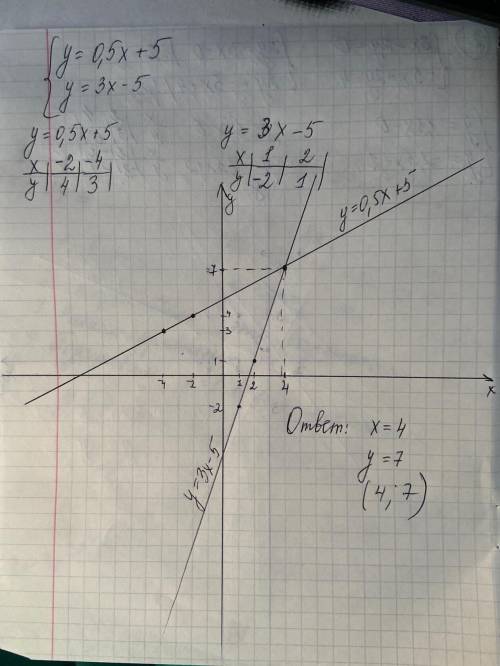 y = 0,5x + 5
y = 3x - 5
y = 0,5x + 5
x | -2 | -4
y | 4 | 3
y = 3x - 5
x | 1 | 2
y | -2 | 1
y
y = 0,5x + 5
7
4
3
1
-4 -2 1 2 4
x
-2
y = 3x - 5
Ответ: x = 4
y = 7
(4; 7)